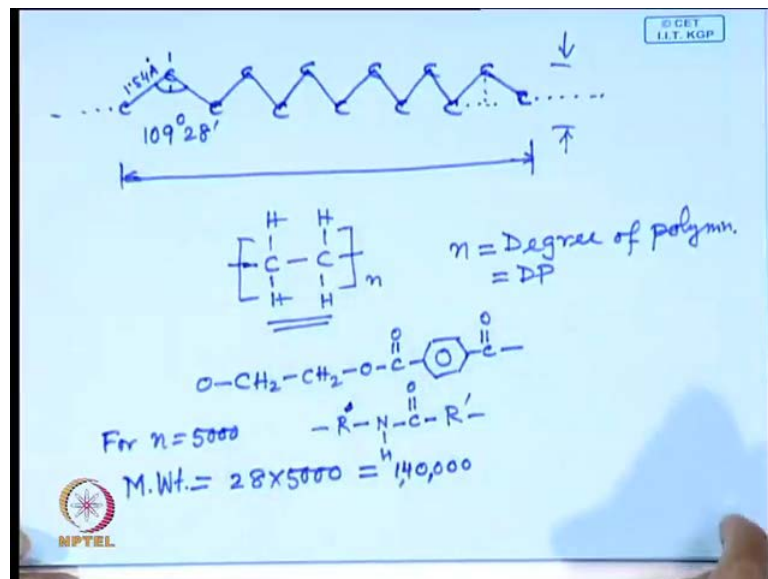 © CET
I.I.T. KGP
1.54Å
C C C C C C C C C C C C
109°28'
H H
[-C-C-]n
H H
n = Degree of polymn.
= DP
O-CH2-CH2-O-C(=O)-⌬-C(=O)-
For n = 5000
-R-N(H)-C(=O)-R'-
M.Wt. = 28×5000 = 1,40,000
NPTEL